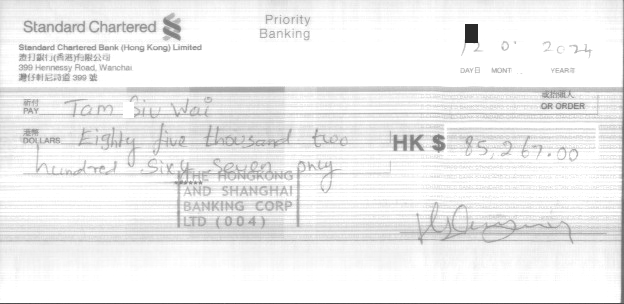 Standard Chartered
Priority
Banking
Standard Chartered Bank (Hong Kong) Limited
渣打銀行(香港)有限公司
399 Hennessy Road, Wanchai
灣仔軒尼詩道 399 號
12 0 2024
DAY日 MONT YEAR年
祈付
PAY
Tam Siu Wai
或持票人
OR ORDER
港幣
DOLLARS
Eighty five thousand two
hundred Sixty Seven only
HK $ 85,267.00
THE HONGKONG
AND SHANGHAI
BANKING CORP
LTD (004)